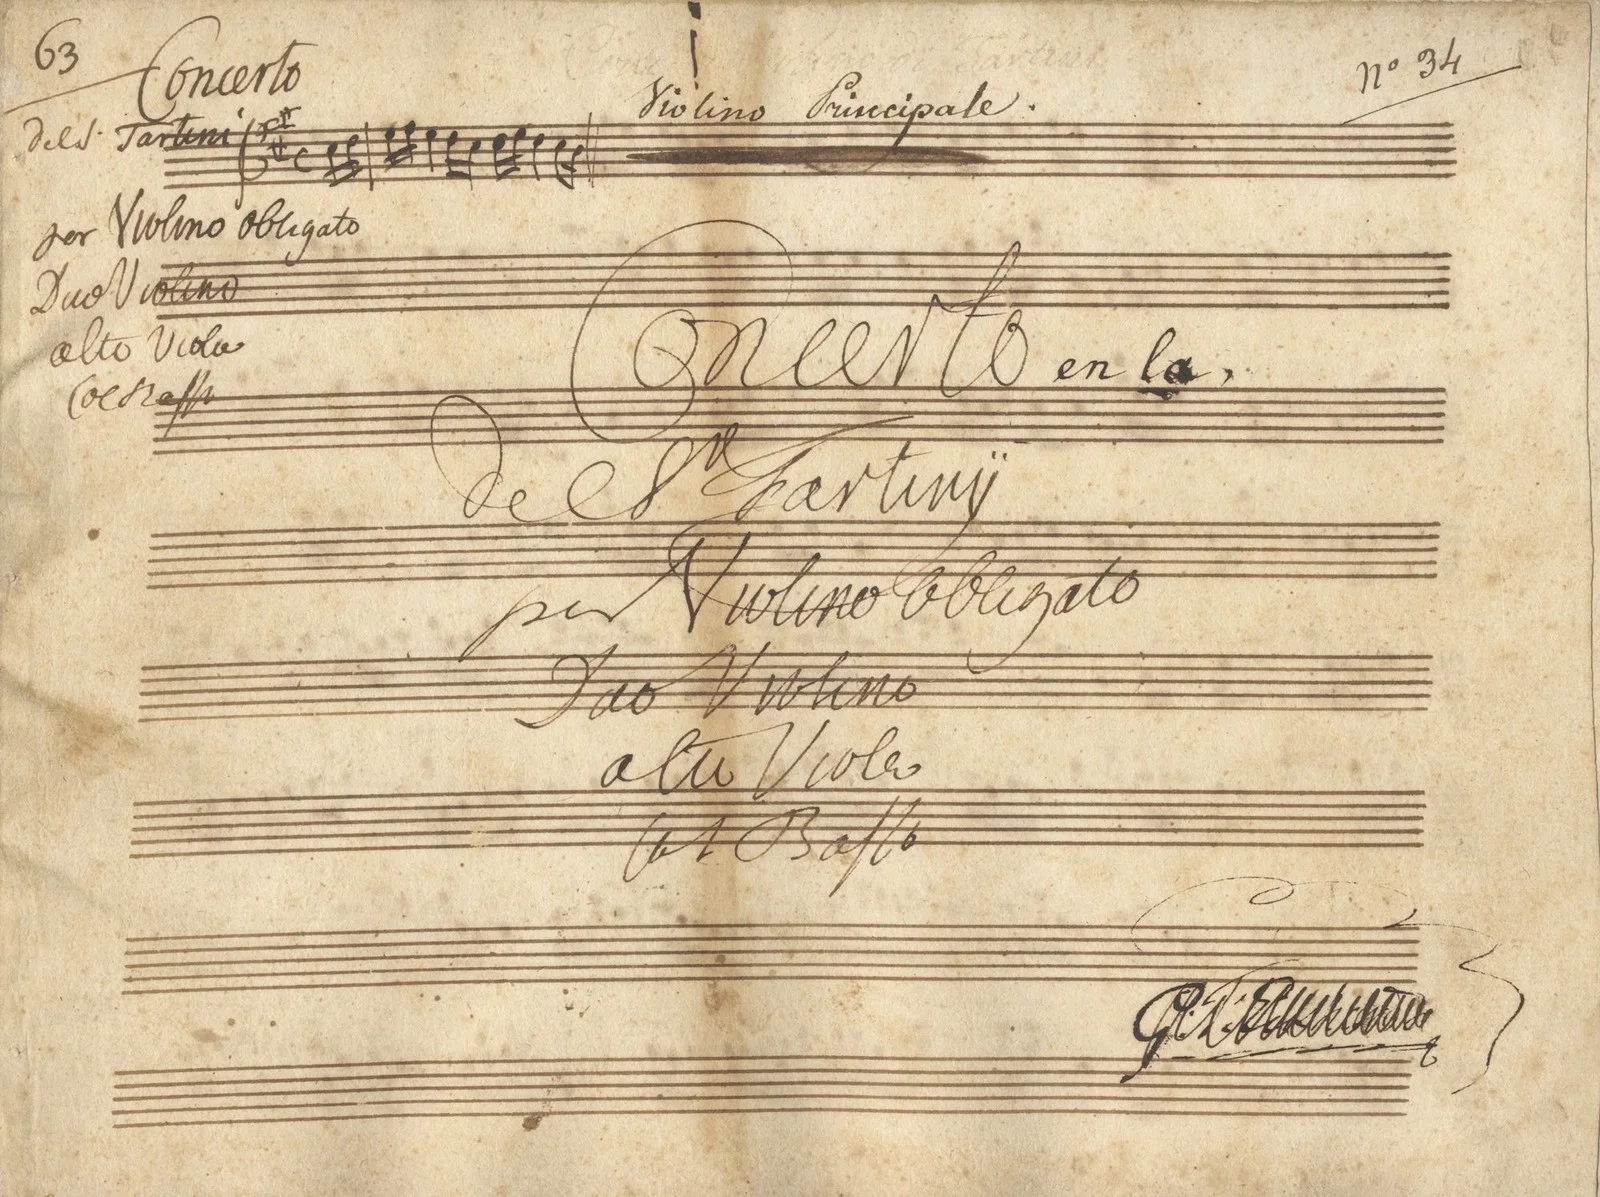 63
Concerto
del S.r Tartini
per Violino obligato
Duo Violino
alto Viola
Col Basso
Violino Principale.
nº 34
Concerto en la,
del S.r Tartinÿ
per Violino obligato
Duo Violino
alto Viola
Col Basso